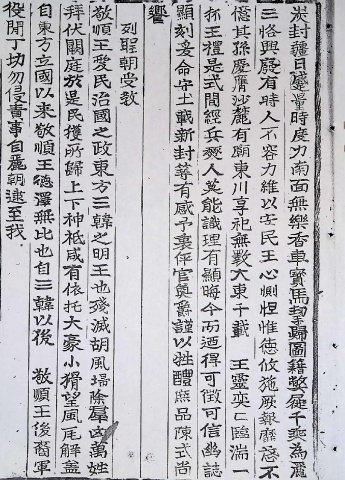 炭封疆日蹙量時度力南面無樂香車寶馬挈歸圖籍屣千乘為麗
二恪興廢有時人不容力維以安民王心惻怛惟德攸施厥報靡忒不
億其孫慶沙麓有廟東川享祀無數大東千載 王靈奕〻臨湍一
抔王禮是式間經兵燹人莫能識理有顯晦今而迺得可徵可信幽誌
顯刻爰命守土載新封有感予衷伻官奠爵謹以牲醴庶品陳式尚
饗
列聖朝受敎
敬順王愛民治國之政東方三韓之明王也殘滅胡風掃除凶萬姓
拜伏闕庭於是民獲所歸上下神祗咸有依托大豪小猾望風瓦解盖
自東方立國以来敬順王德澤無比也自三韓以後 敬順王後裔軍
役閑丁切勿侵責事自麗朝逮至我